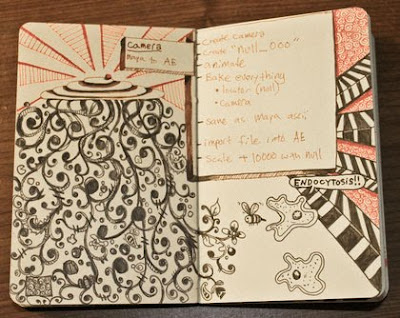 Camera
maya to AE
create camera
create "null_000"
animate
Bake everything
• locator (null)
• camera
save as maya ascii
import file into AE
scale + 10000 w/ null
ENDOCYTOSIS!!